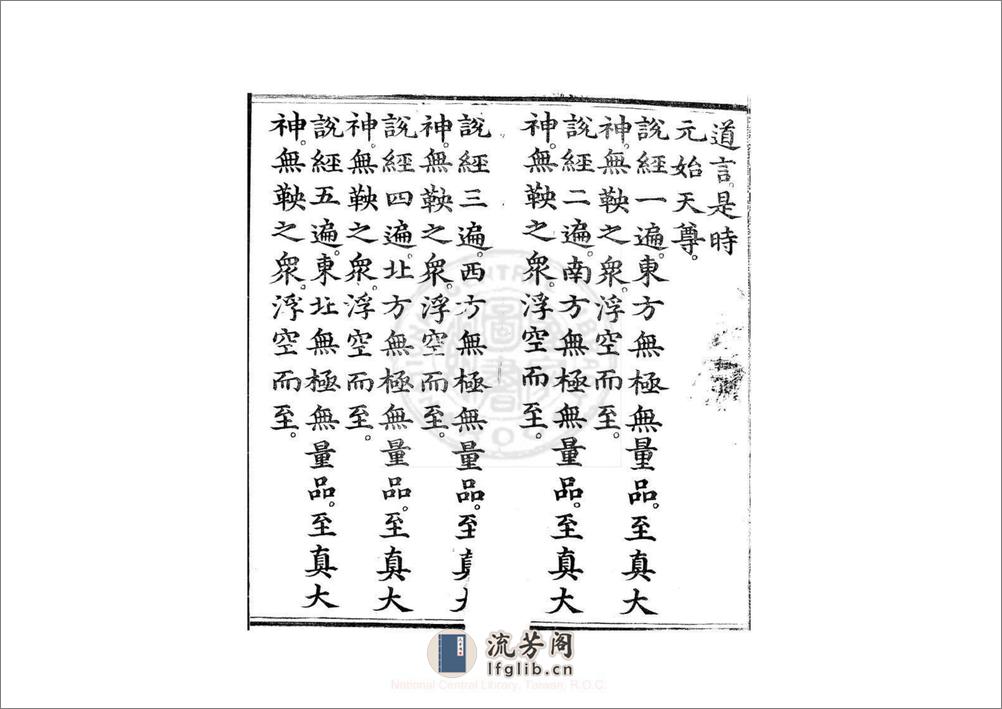 道言。是時
元始天尊。
說經一遍。東方無極無量品。至真大
神。無鞅之衆。浮空而至。
說經二遍。南方無極無量品。至真大
神。無鞅之衆。浮空而至。
說經三遍。西方無極無量品。至真大
神。無鞅之衆。浮空而至。
說經四遍。北方無極無量品。至真大
神。無鞅之衆。浮空而至。
說經五遍。東北無極無量品。至真大
神。無鞅之衆。浮空而至。
流芳阁
lfglib.cn
National Central Library, Taiwan, R.O.C.